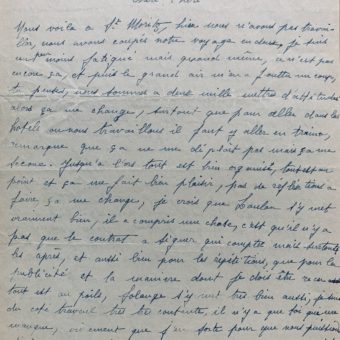 Nous voilà a St. Moritz, hier nous n'avons pas travaillé,
nous avons coupés notre voyage en deux, je suis
un peu moins fatigué mais quand même, ce n'est pas
encore ça, et puis le grand air m'a foutu un coup,
tu penses, nous sommes a deux mille mètres d'altitude
alors ça me change, surtout que pour aller dans les
hotels ou nous travaillons il faut y aller en traineau,
remarque que ça ne me déplait pas mais ça me
secoue. Jusqu'à l'os tout est bien organisé, tout est au
point et ça me fait bien plaisir, pas de réflexions a
faire ça me change, je crois que s'y met
vraiment bien, il a compris une chose, c'est qu'il n'y a
pas que le contrat a signer qui compte mais surtout
les apres, et aussi bien pour les répétitions, que pour la
publicité et la manière dont je dois être
tout est au poils, Solange s'y met très bien aussi, je suis
du coté travail très très contente, il n'y a que toi que me
manque, vivement que j'en sorte pour que nous puissions